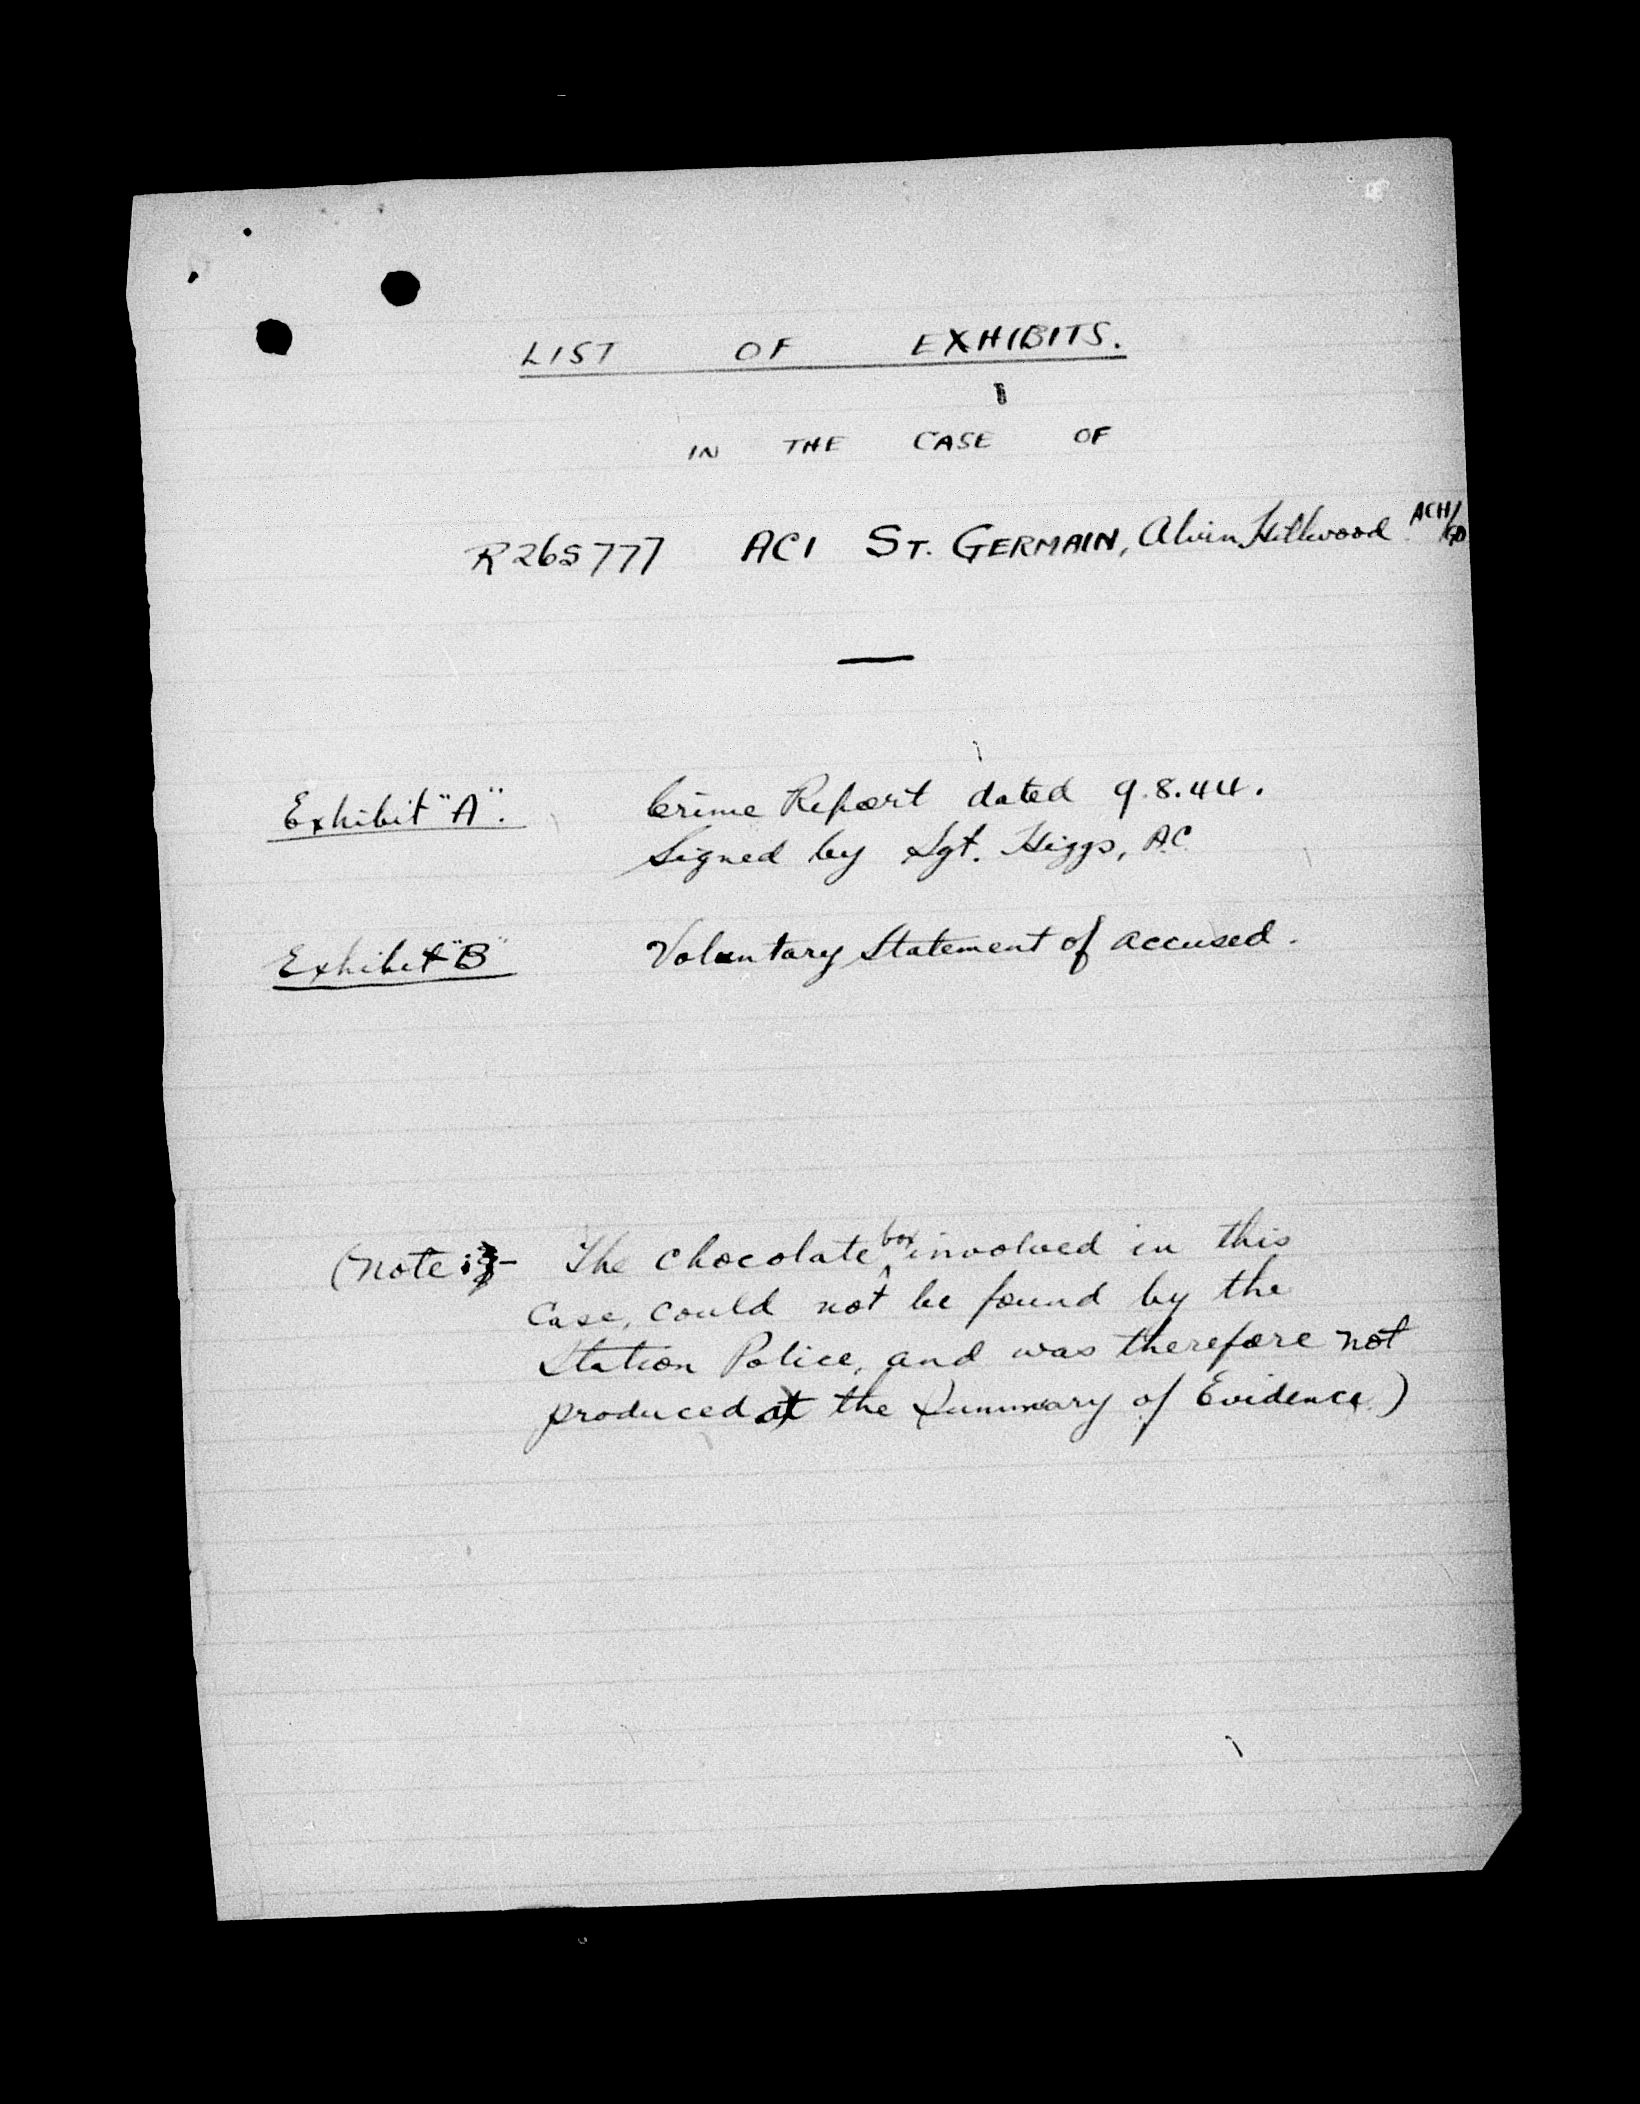 LIST OF EXHIBITS.
IN THE CASE OF
R265777 AC1 ST. GERMAIN, Alvin Hillwood ACH/GD
Exhibit "A". Crime Report dated 9.8.44.
Signed by Sgt. Higgs, AC
Exhibit "B" Voluntary Statement of accused.
(Note :- The chocolate box involved in this
Case, could not be found by the
Station Police, and was therefore not
produced at the Summary of Evidence.)